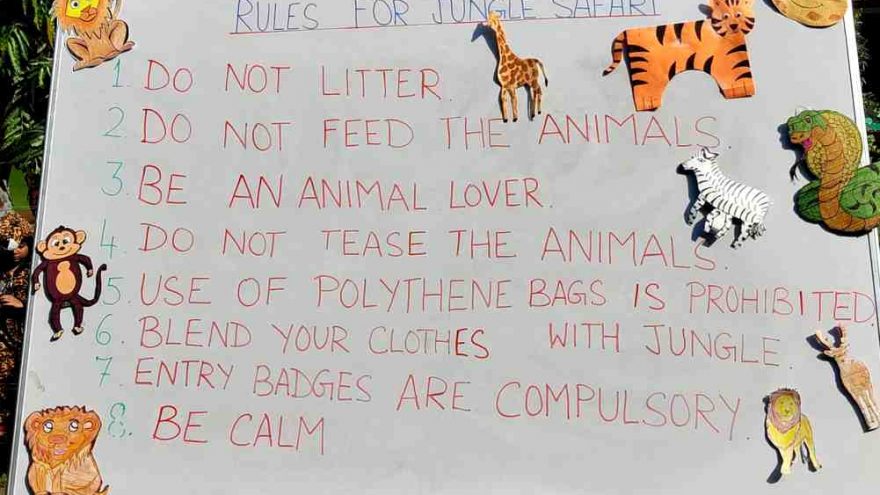 RULES FOR JUNGLE SAFARI
1. DO NOT LITTER.
2. DO NOT FEED THE ANIMALS.
3. BE AN ANIMAL LOVER.
4. DO NOT TEASE THE ANIMALS.
5. USE OF POLYTHENE BAGS IS PROHIBITED.
6. BLEND YOUR CLOTHES WITH JUNGLE.
7. ENTRY BADGES ARE COMPULSORY.
8. BE CALM